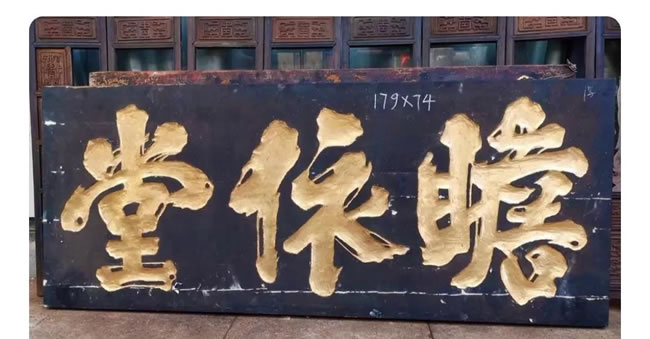 瞻依堂
179×74